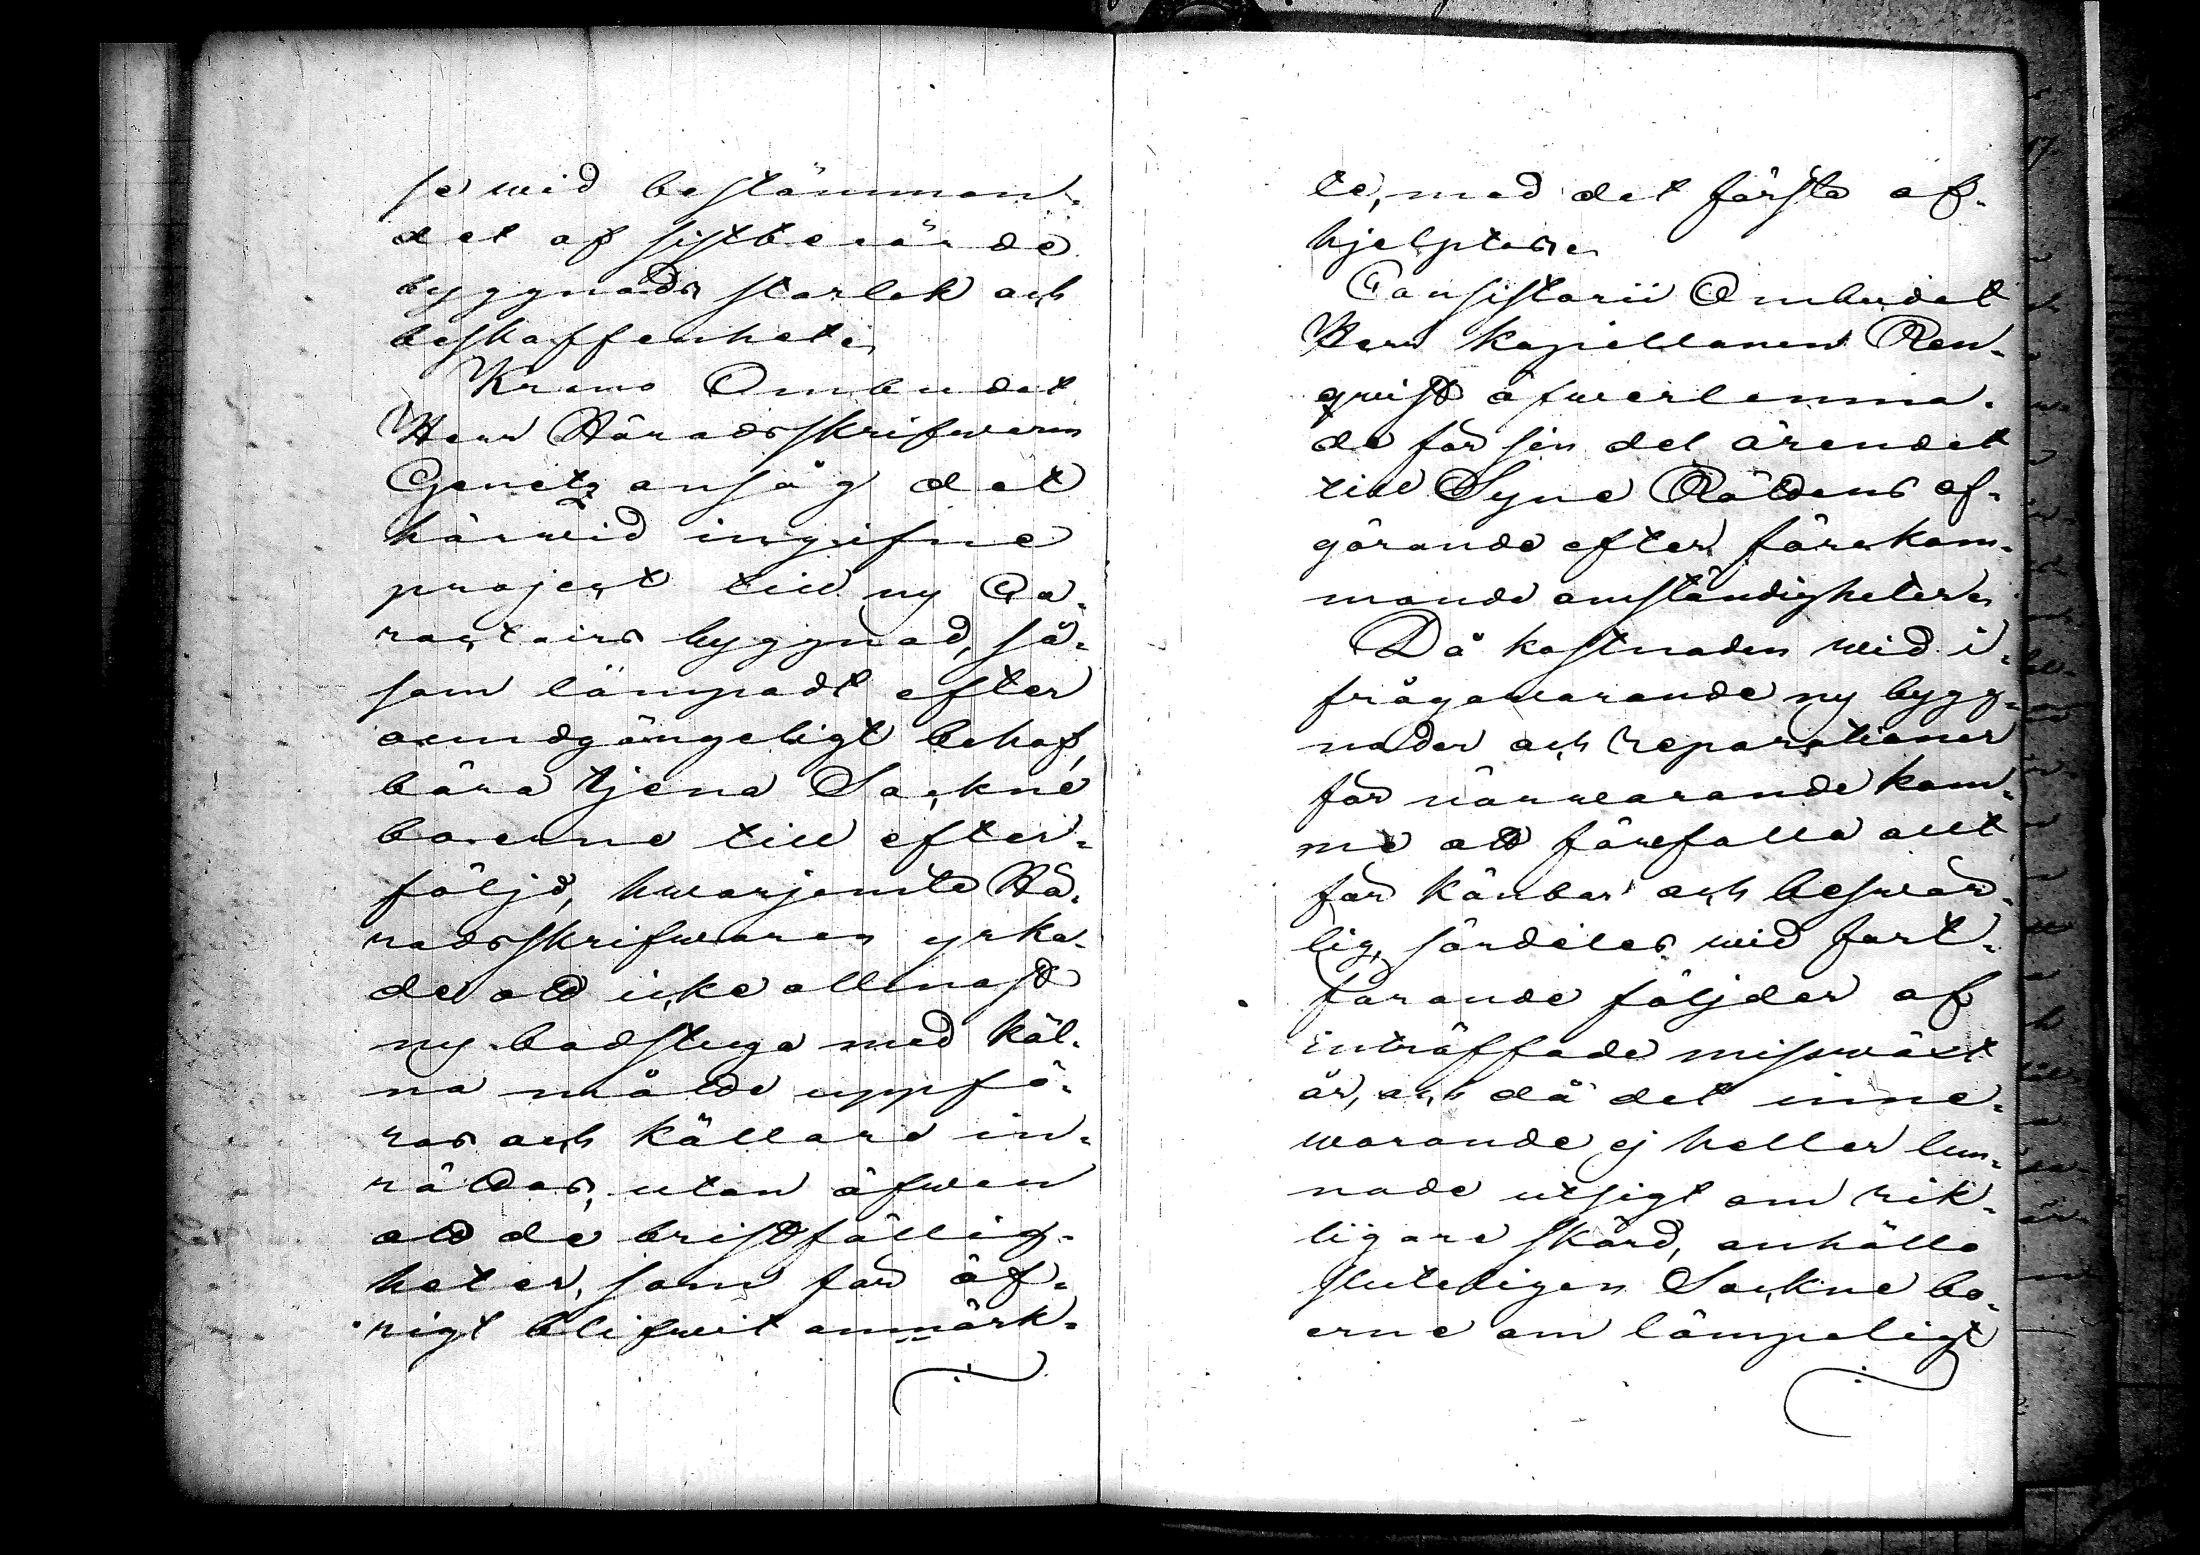 se wid bestämman-
det af sistberörde
byggnads storlek och
beskaffenhet.
Krono Ombudet
Herr Häradsskrifwaren
Genetz ansåg det
härwid ingifne
project till ny Ca-
ractairs byggnad, så-
som lämpadt efter
oundgängeligt behof,
böra tjena Sockne
boerne till efter-
följd, hwarjemte Hä-
radsskrifwaren yrka-
de att icke allenast
ny badstuga med Köl-
na måtte uppfö-
ras och Källare in-
rättas, utan äfwen
att de bristfällig-
heter, som för öf-
rigt blifwit anmärk-
te, med det första af-
hjelptes.
Consistorii Ombudet
Herr Kapellanen Ren-
qwist öfwerlemna-
de för sin del ärendet
till Syne Rättens af-
görande efter förekom-
mande omständigheter.
Då kostnaden wid i-
frågawarande ny bygg-
nader och reparationer
för närwarande kom-
me att förefalla allt
för känbar och beswär-
lig, särdeles wid fort-
farande följder af
inträffade misswäxt
år, och då det inne-
warande ej heller lem-
nade utsigt om rik-
ligare skörd, anhölle
sluteligen Sockne bo-
erne om lämpeligt